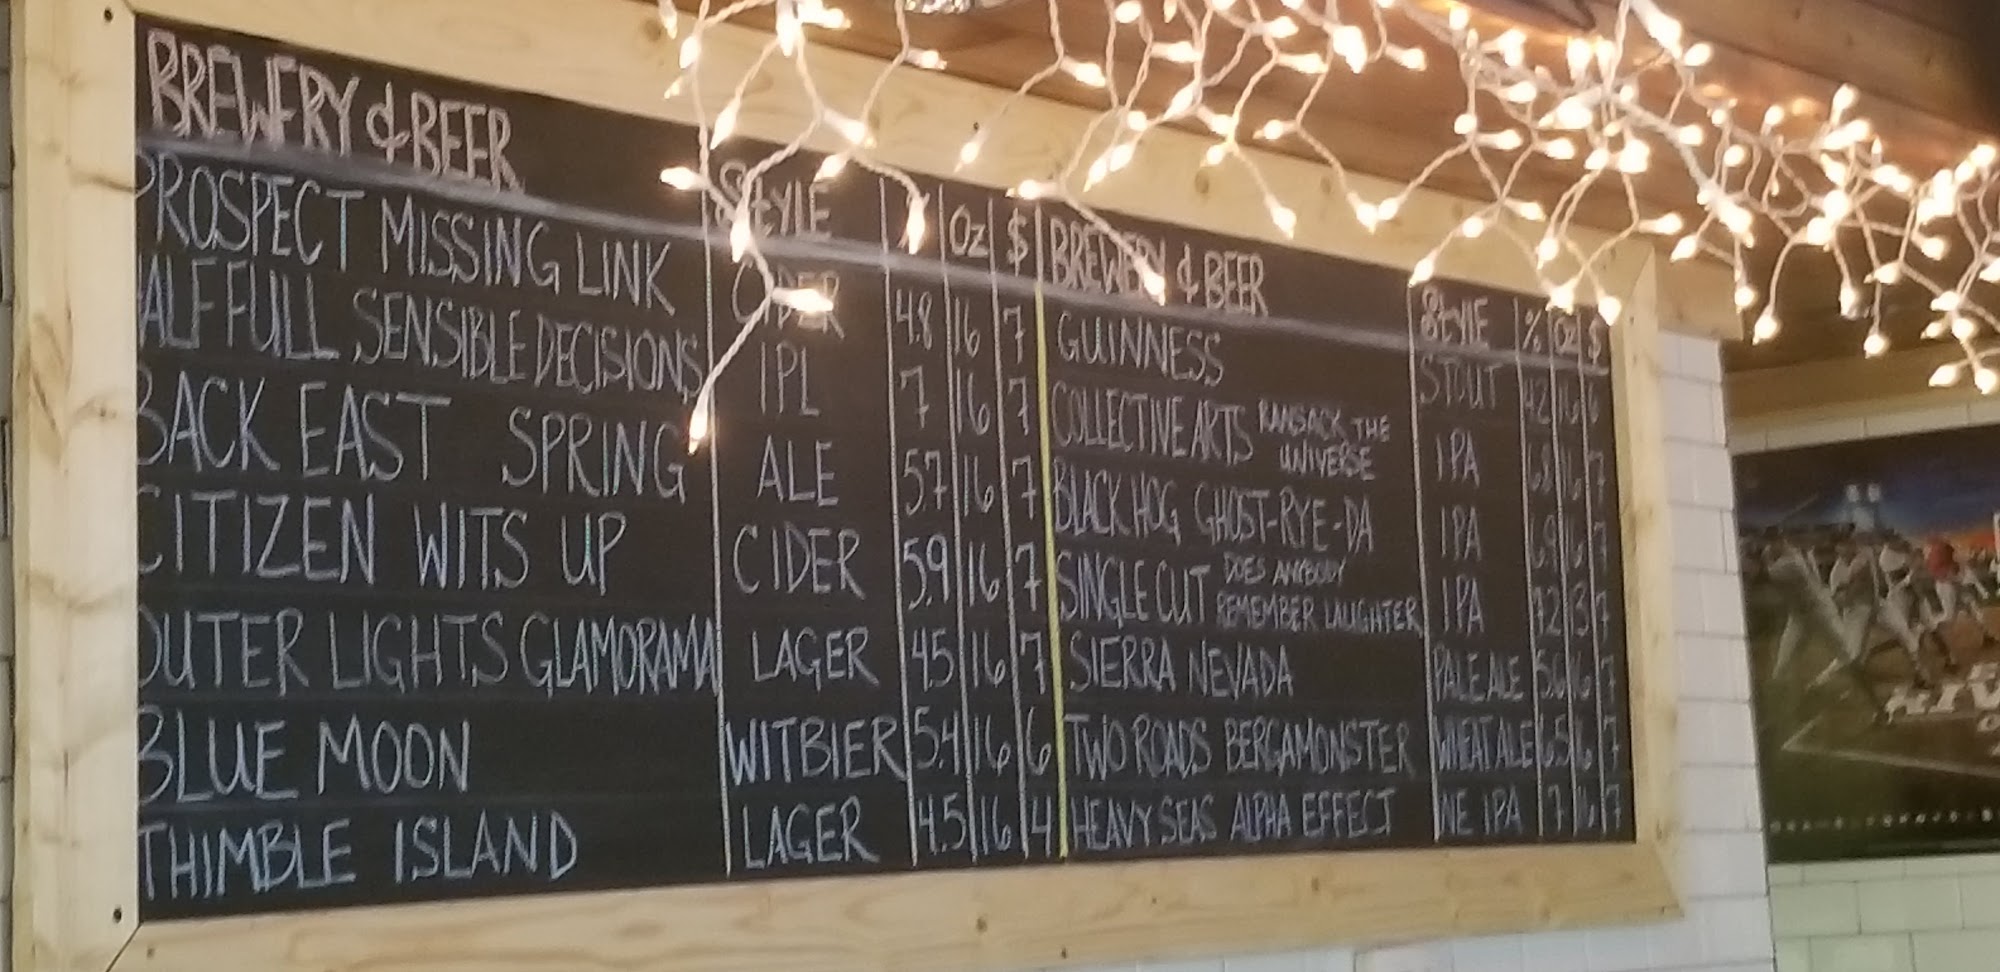 BREWERY & BEER STYLE % OZ $
PROSPECT MISSING LINK CIDER 4.8 16 7
HALF FULL SENSIBLE DECISIONS IPL 7 16 7
BACK EAST SPRING ALE 5.7 16 7
CITIZEN WITS UP CIDER 5.9 16 7
OUTER LIGHTS GLAMORAMA LAGER 4.5 16 7
BLUE MOON WITBIER 5.4 16 6
THIMBLE ISLAND LAGER 4.5 16 4
BREWERY & BEER STYLE % OZ $
GUINNESS STOUT 4.2 16 6
COLLECTIVE ARTS RANSACK THE
UNIVERSE IPA 6.8 16 7
BLACK HOG GHOST-RYE-DA IPA 6.9 16 7
SINGLE CUT DOES ANYBODY
REMEMBER LAUGHTER IPA 7.2 13 7
SIERRA NEVADA PALE ALE 5.6 16 7
TWO ROADS BERGAMONSTER WHEAT ALE 6.5 16 7
HEAVY SEAS ALPHA EFFECT NE IPA 7 16 7